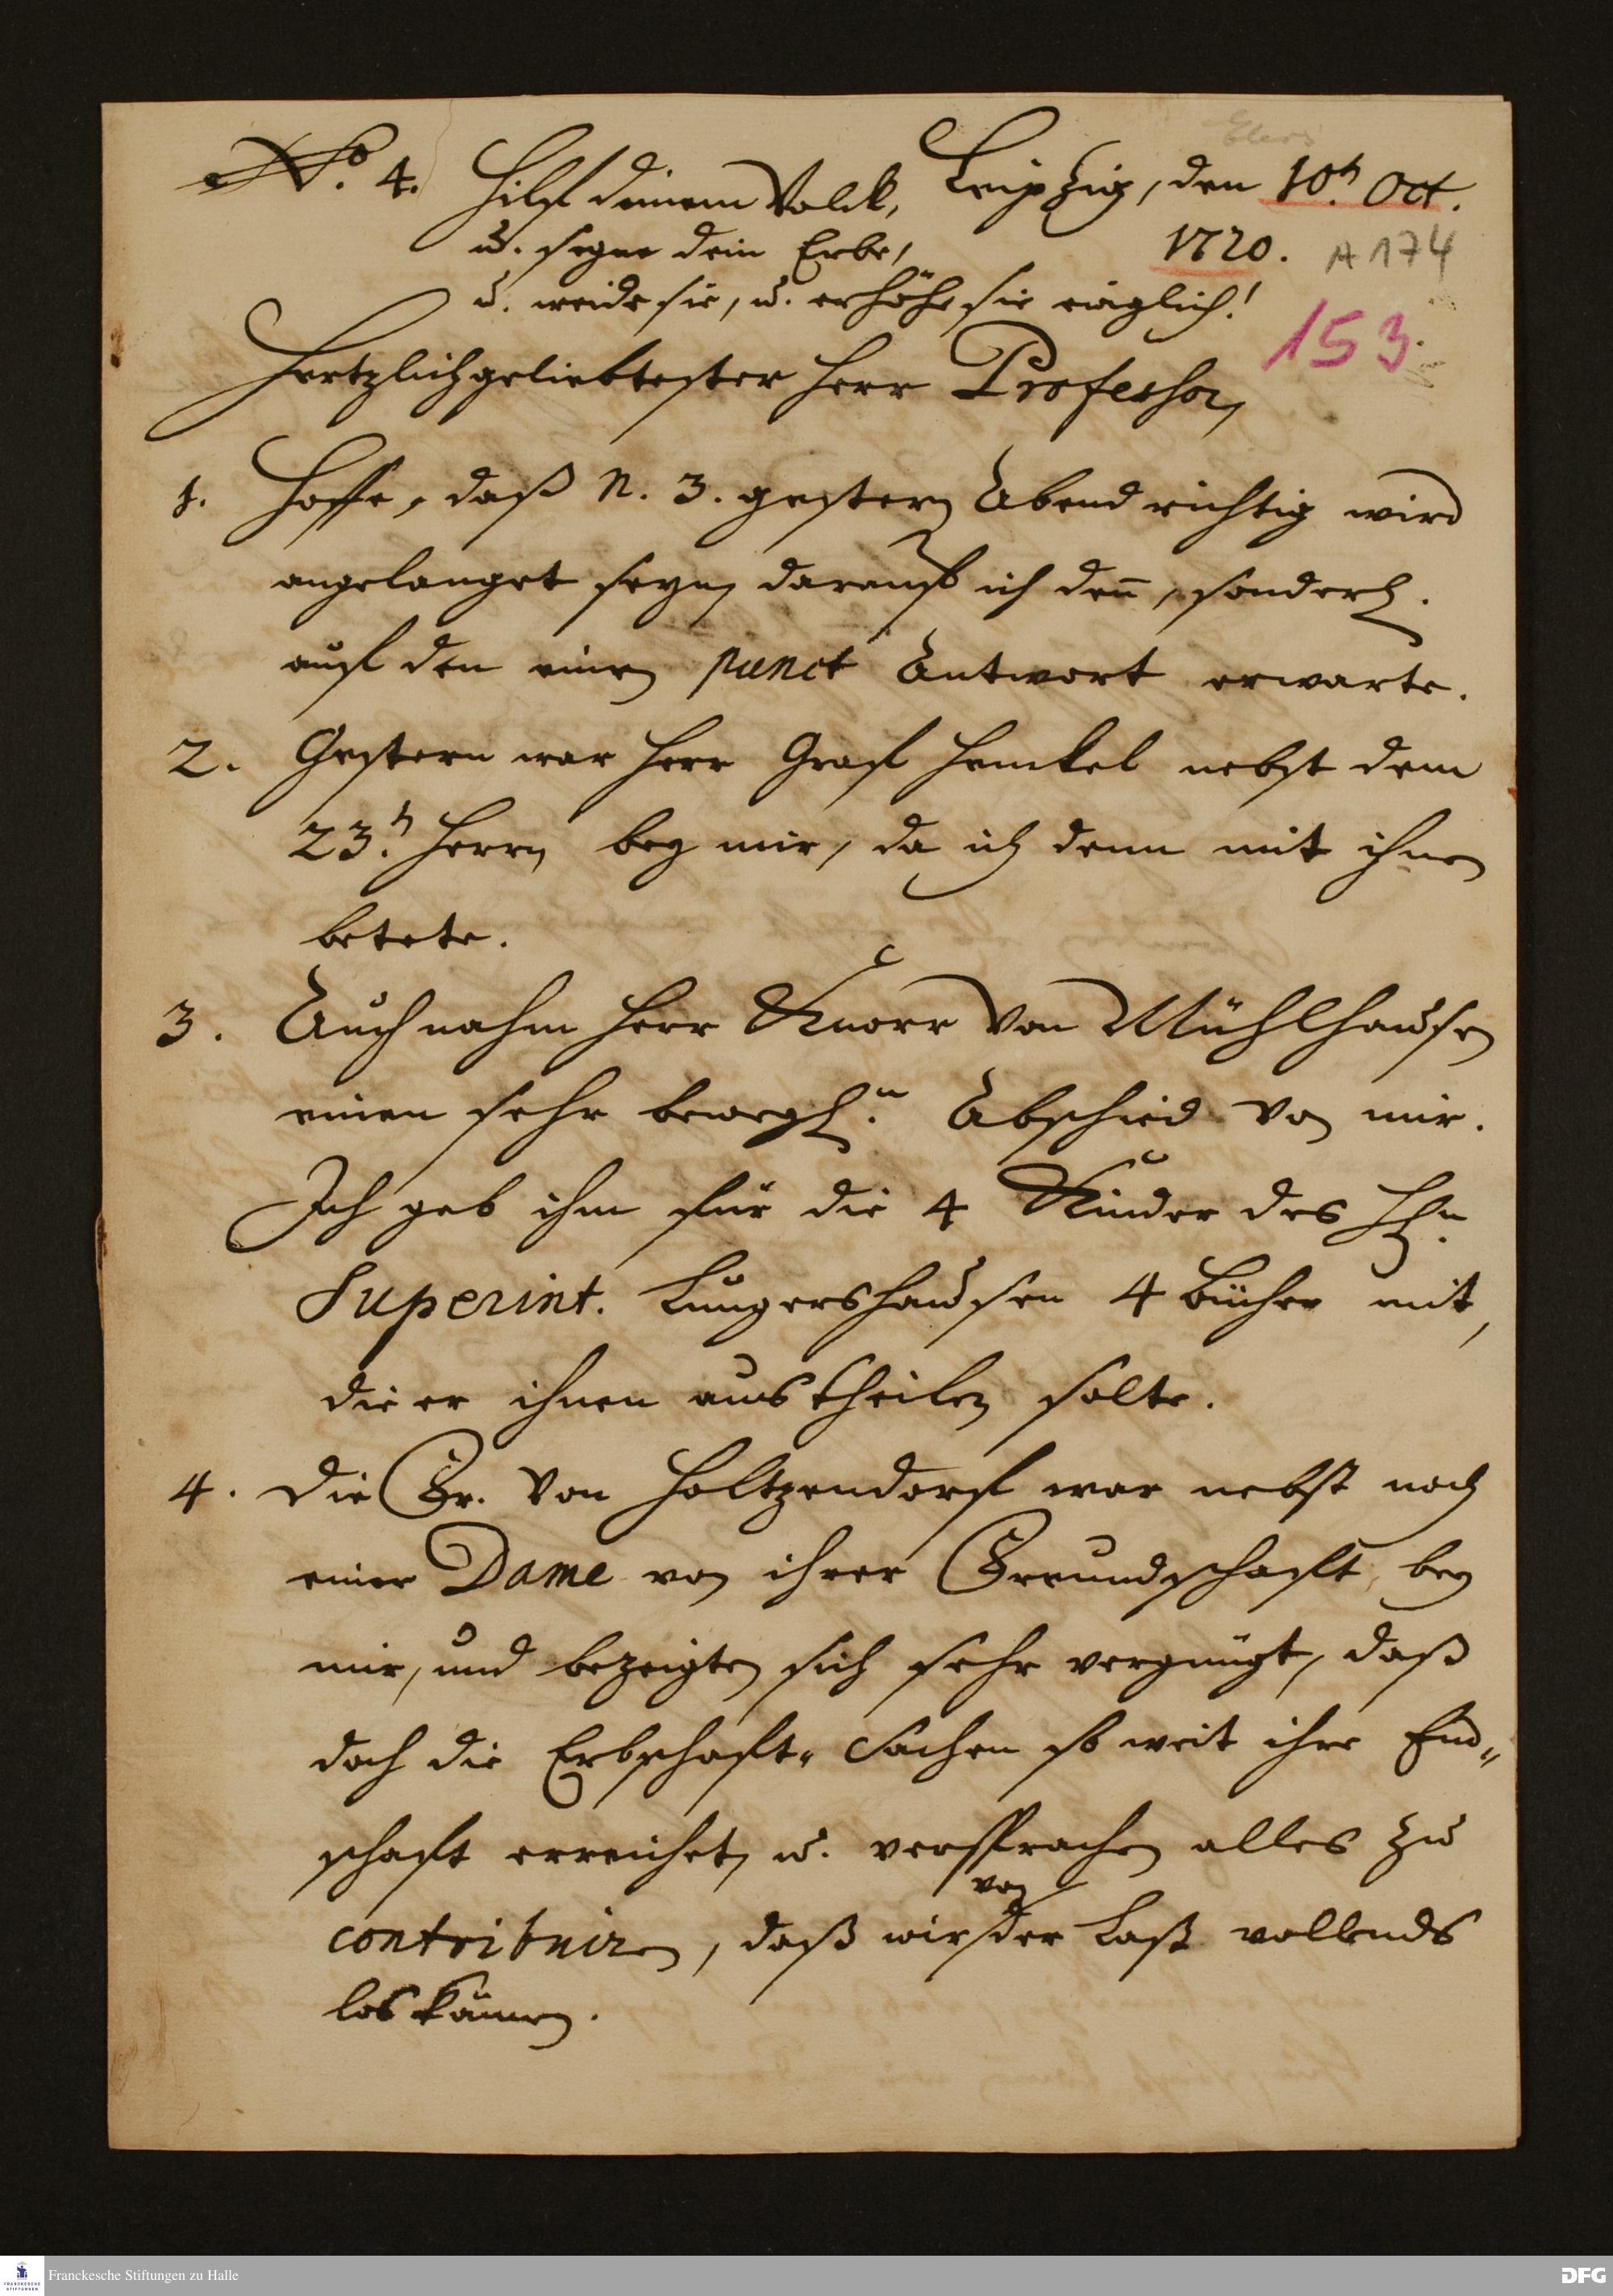 Elers
No. 4. Hilf deinem Volck, Leipzig, den 10n Oct.
u. segne dein Erbe, 1720. A 174
u. weide sie, u. erhöhe sie ewiglich!
153.
Hertzlichgeliebtester Herr Professor,
1. Hoffe, daß N. 3. gestern Abend richtig wird
angelanget seyn, darauff ich den̄, sonderl.
auf den einen punct Antwort erwarte.
2. Gestern war Herr Graf Henckel nebst dem
23.n Herrn bey mir, da ich denn mit ihnen
betete.
3. Auch nahm Herr Knorr von Mühlhausen
einen sehr bewegl.n Abschied von mir.
Ich gab ihm für die 4 Kinder des Hn.
Superint. Lungershausen 4 Bücher mit,
die er ihnen austheilen solte.
4. Die Fr. von Holtzendorf war nebst noch
einer Dame von ihrer Freundschafft bey
mir, und bezeigten sich sehr vergnügt, daß
doch die Erbschafft-Sachen so weit ihre End-
schaft erreichet, u. versprachen alles zu
contribuiren, daß wir von der Last vollends
los kämen.
Franckesche Stiftungen zu Halle
FRANCKESCHE STIFTUNGEN
DFG